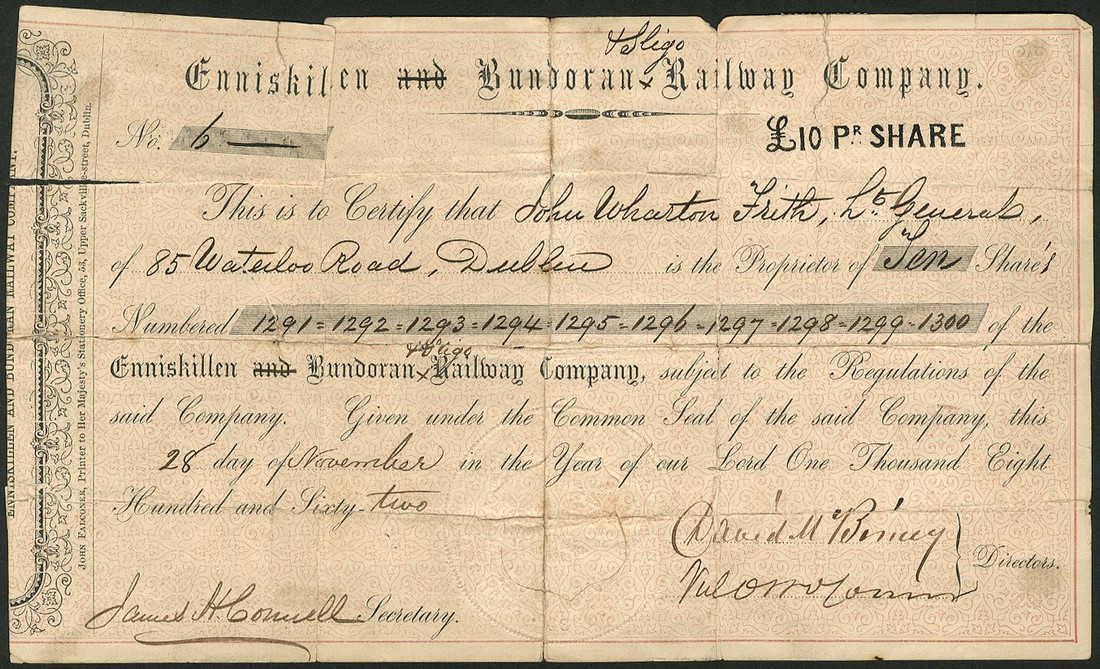 & Sligo
Enniskillen and Bundoran x Railway Company.
No. 6
£10 Pr SHARE
This is to Certify that John Wharton Frith, Lt General,
of 85 Waterloo Road, Dublin is the Proprietor of Ten Share's
Numbered 1291 = 1292 = 1293 = 1294 = 1295 = 1296 = 1297 - 1298 - 1299 - 1300 of the
& Sligo
Enniskillen and Bundoran x Railway Company, subject to the Regulations of the
said Company. Given under the Common Seal of the said Company, this
28 day of November in the Year of our Lord One Thousand Eight
Hundred and Sixty-two
David McBirney
Directors.
James H Connell Secretary.
ENNISKILLEN AND BUNDORAN RAILWAY COMPANY.
JOHN FALCONER, Printer to Her Majesty's Stationery Office, 53, Upper Sackville-street, Dublin.